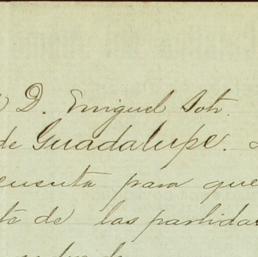 D. Enrique Soto
de Guadalupe.
cuenta para que
de las partidas